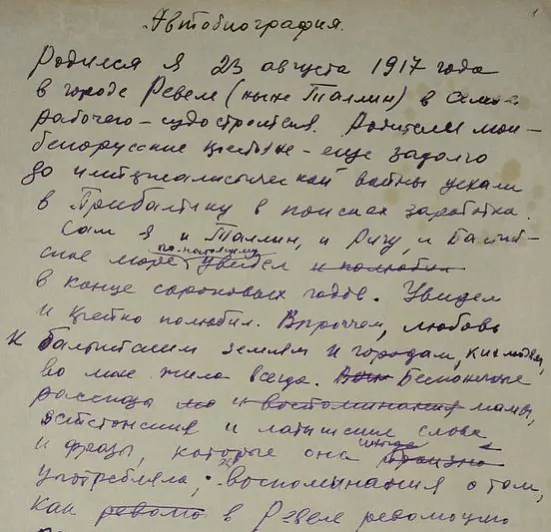 1
Автобиография.
Родился я 23 августа 1917 года
в городе Ревеле (ныне Таллин) в семье
рабочего-судостроителя. Родители мои -
белорусские крестьяне - еще задолго
до империалистической войны уехали
в Прибалтику в поисках заработка.
Сам я и Таллин, и Ригу, и Балтий-
ское море по-настоящему увидел и полюбил
в конце сороковых годов. Увидел
и крепко полюбил. Впрочем, любовь
к балтийским землям и городам, к их людям,
во мне жила всегда. Бесконечные
рассказы и воспоминания мамы,
эстонские и латышские слова
и фразы, которые она иногда
употребляла, воспоминания о том,
как в Ревеле революцию